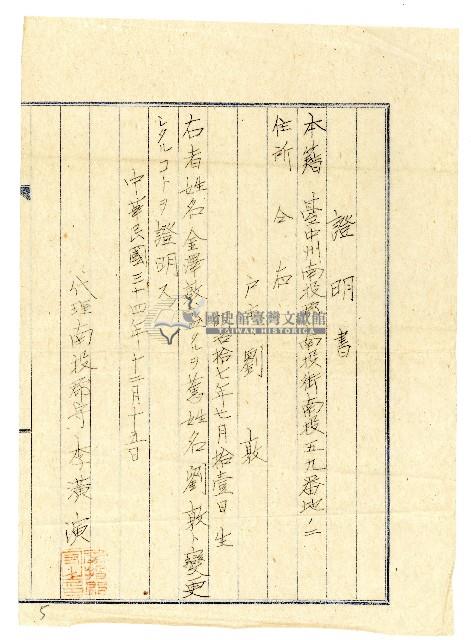 證明書
本籍 臺中州南投郡南投街南投五九番地ノ二
住所 仝右
戶長 劉 敦
拾七年七月拾壹日生
右者姓名金澤敦ヲ舊姓名劉敦ト變更
シタルコトヲ證明ス
中華民國三十四年十二月十五日
代理南投郡守 李黃演
國史館臺灣文獻館
TAIWAN HISTORICA
5